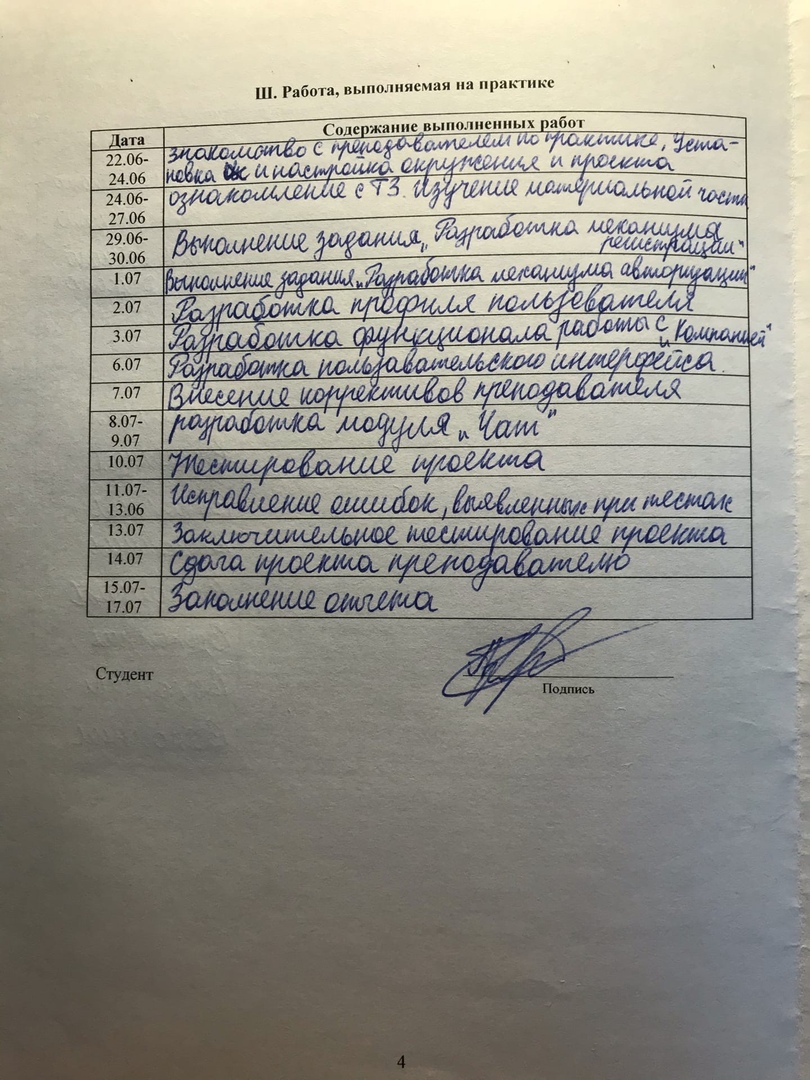 III. Работа, выполняемая на практике
Дата Содержание выполненных работ
22.06- знакомство с преподавателем по практике, Уста-
24.06 новка и настройка окружения и проекта
24.06- ознакомление с ТЗ. Изучение материальной части
27.06
29.06- Выполнение задания „Разработка механизма
30.06 регистрации"
1.07 Выполнение задания „Разработка механизма авторизации"
2.07 Разработка профиля пользователя
3.07 Разработка функционала работы с „Компанией"
6.07 Разработка пользавательского интерфейса.
7.07 Внесение коррективов преподавателя
8.07- разработка модуля „Чат"
9.07
10.07 Тестирование проекта
11.07- Исправление ошибок, выявленных при тестах
13.06
13.07 Заключительное тестирование проекта
14.07 Сдача проекта преподавателю
15.07- Заполнение отчета
17.07
Студент
Подпись
4